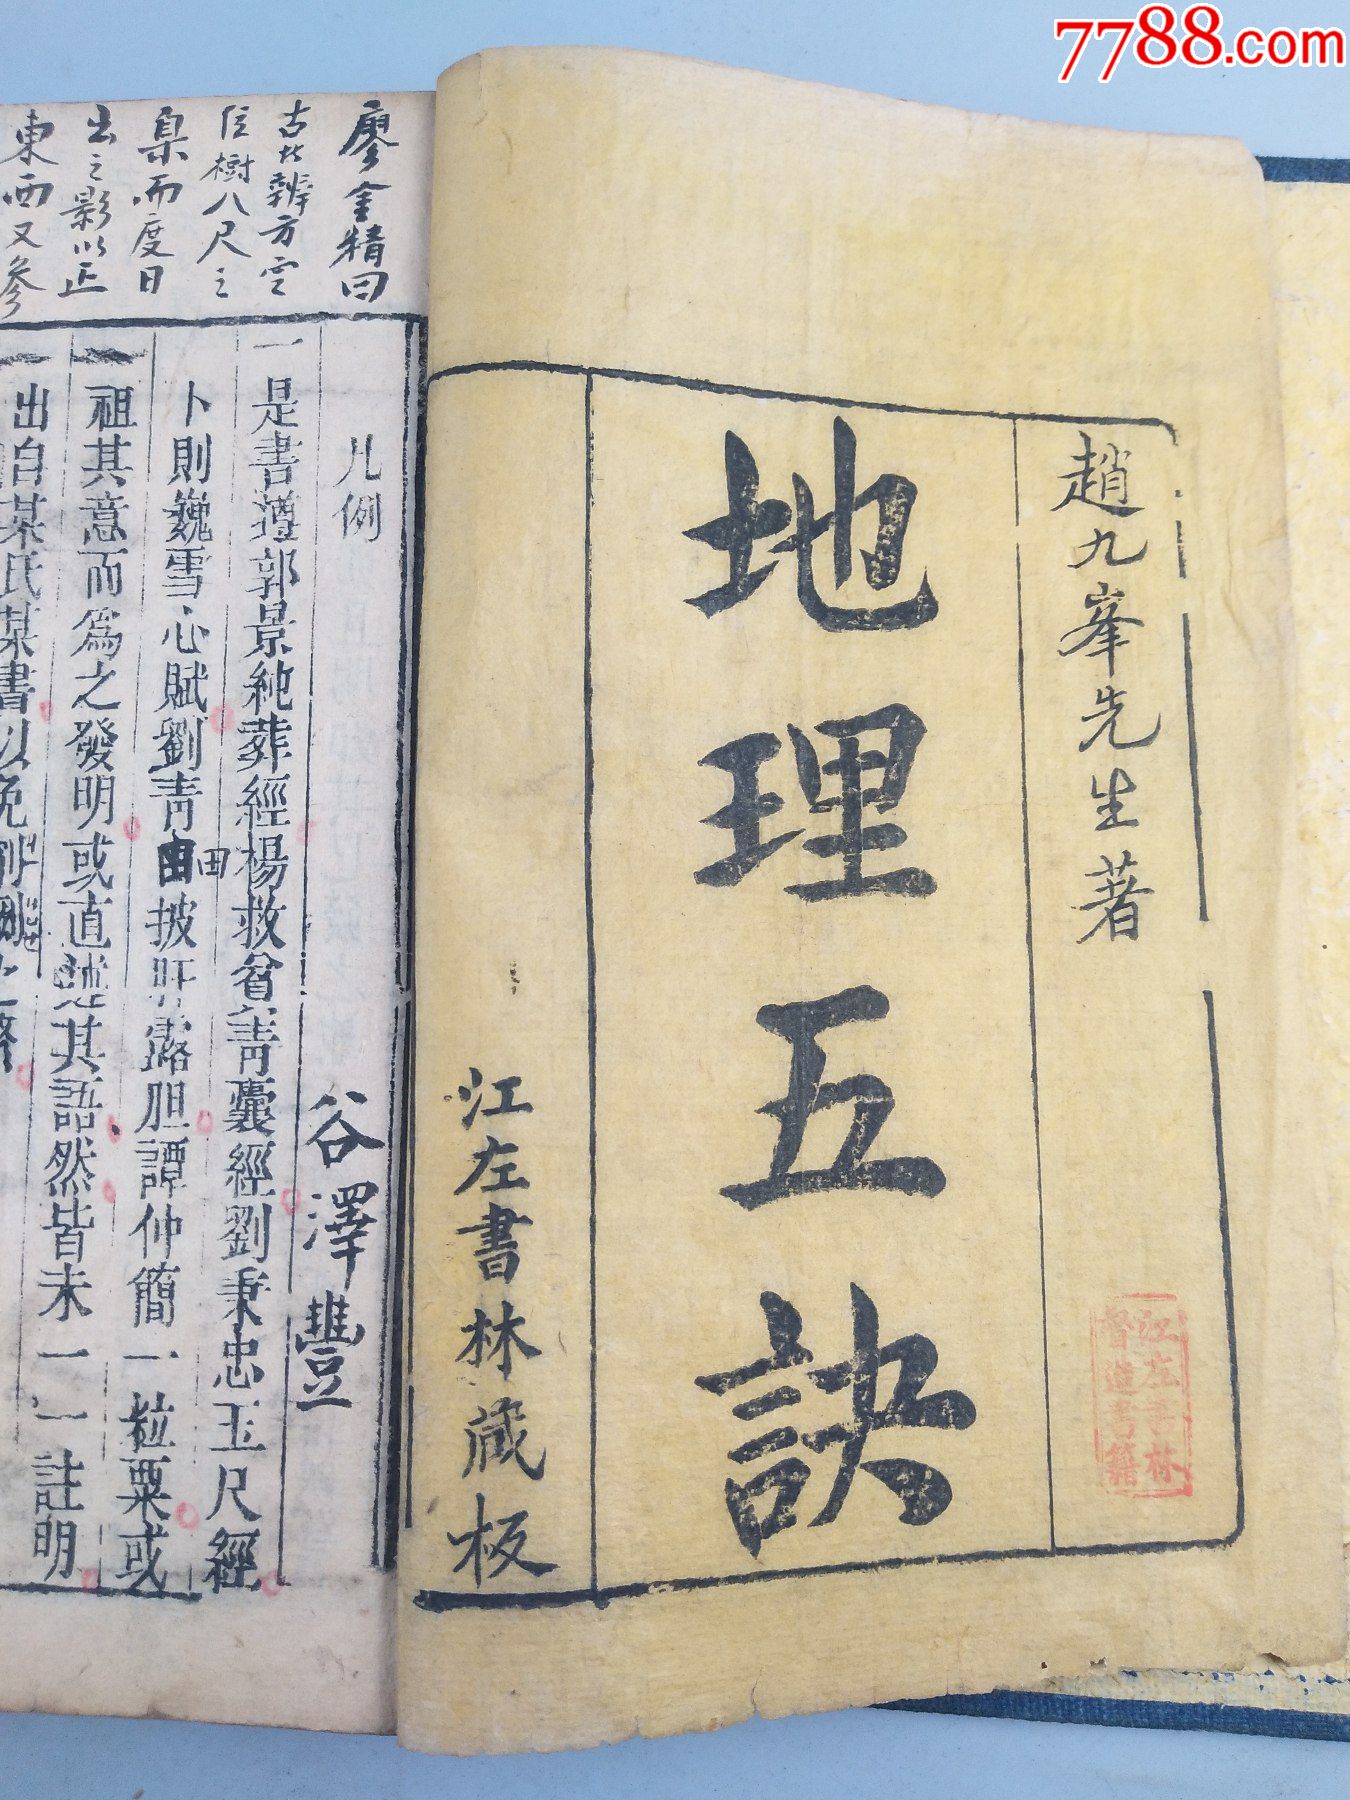 7788.com
趙九峯先生著
地理五訣
江左書林藏板
江左書林
督造書籍
廖金精曰
古者辨方定
位樹八尺之
臬而度日
出之影以正
東西又參
凡例
谷澤豐
一是書遵郭景純葬經楊救貧青囊經劉秉忠玉尺經
卜則巍雪心賦劉青田披肝露胆譚仲簡一粒粟或
祖其意而為之發明或直述其語然皆未一一註明
出自某氏某書以免